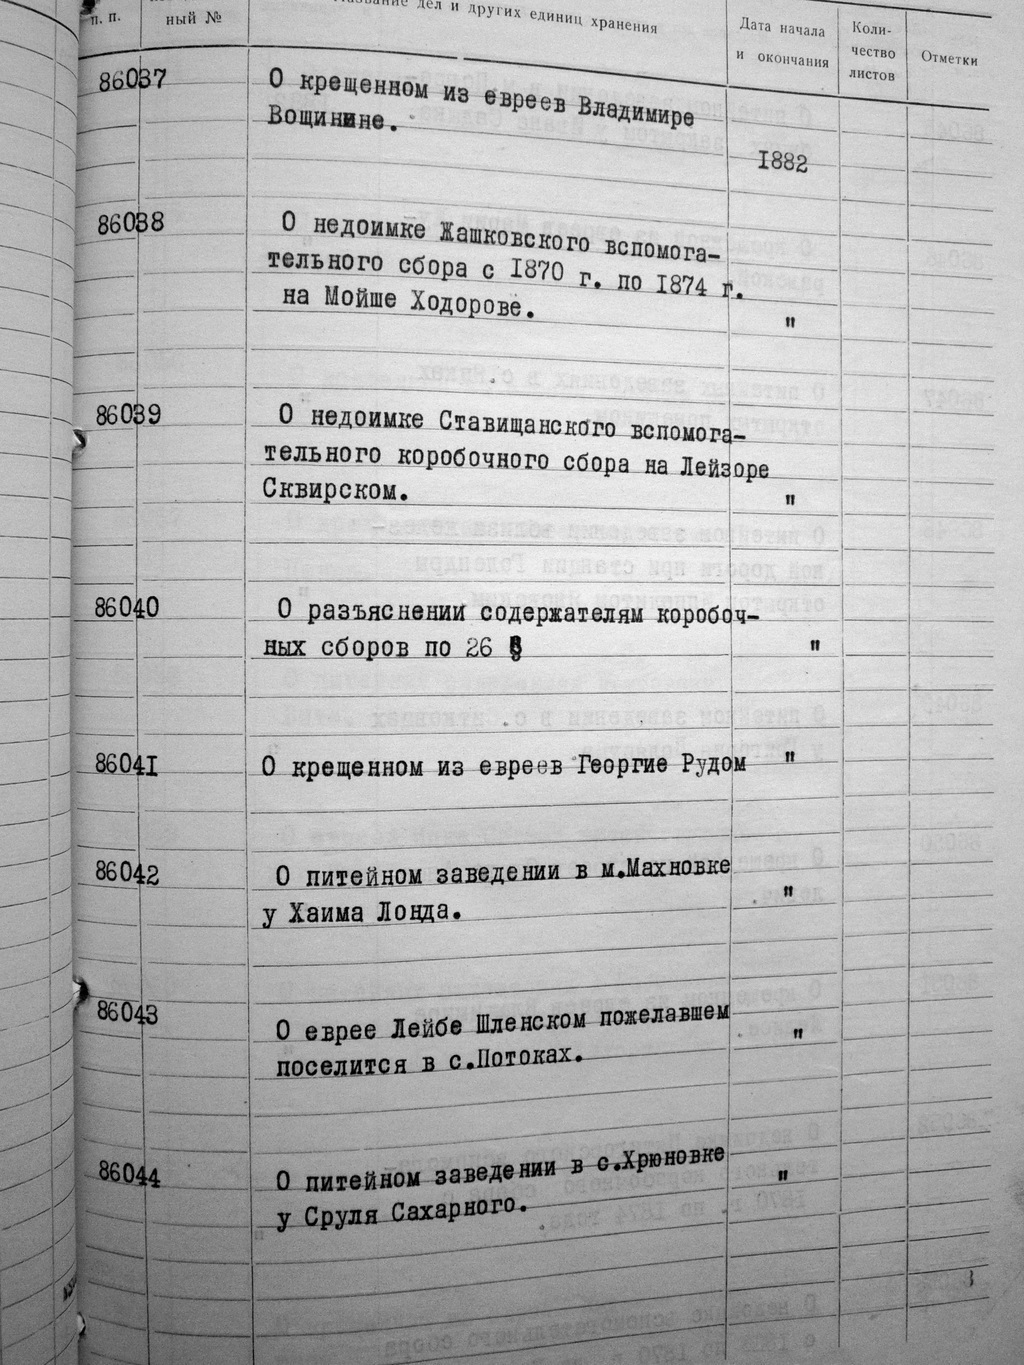 п. п.
ный №
дел и других единиц хранения
Дата начала
и окончания
Коли-
чество
листов
Отметки
86037
О крещенном из евреев Владимире
Вощинине.
1882
86038
О недоимке Жашковского вспомога-
тельного сбора с 1870 г. по 1874 г.
на Мойше Ходорове.
"
86039
О недоимке Ставищанского вспомога-
тельного коробочного сбора на Лейзоре
Сквирском.
"
86040
О разъяснении содержателям короboч-
ных сборов по 26 §
"
86041
О крещенном из евреев Георгие Рудом
"
86042
О питейном заведении в м.Махновке
у Хаима Лонда.
"
86043
О еврее Лейбе Шленском пожелавшем
поселится в с.Потоках.
"
86044
О питейном заведении в с.Хрюновке
у Сруля Сахарного.
"